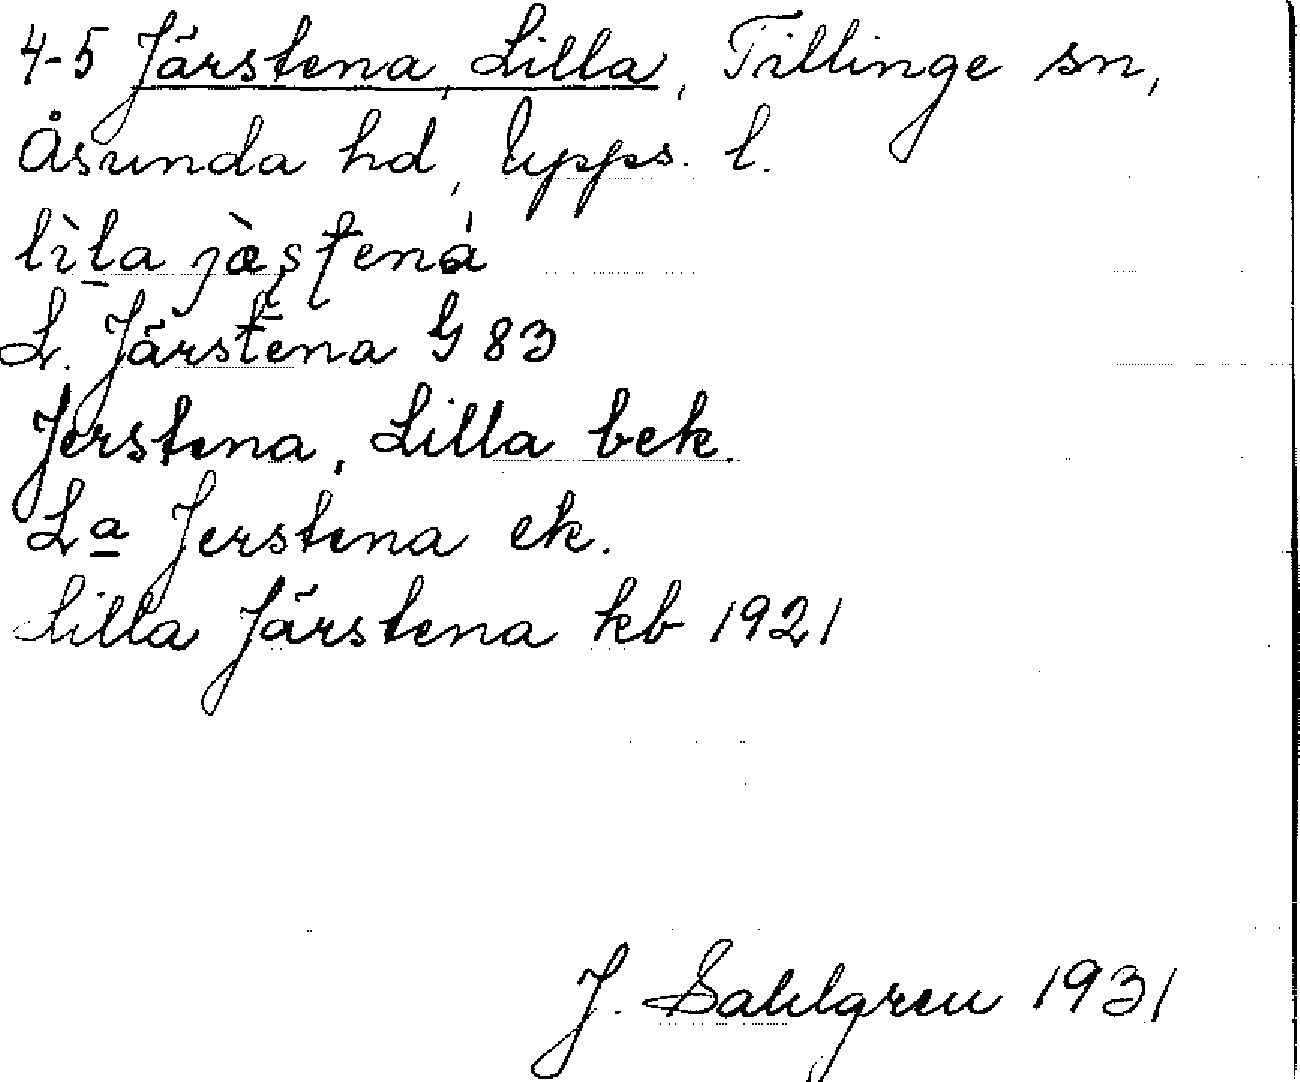 4-5 Järstena, Lilla, Tillinge sn,
Åsunda hd, Upps. l.
lìla jæ̀ṣṭená
L. Järstena G 83
Jerstena, Lilla bek.
Lª Jerstena ek.
Lilla Järstena kb 1921
J. Sahlgren 1931